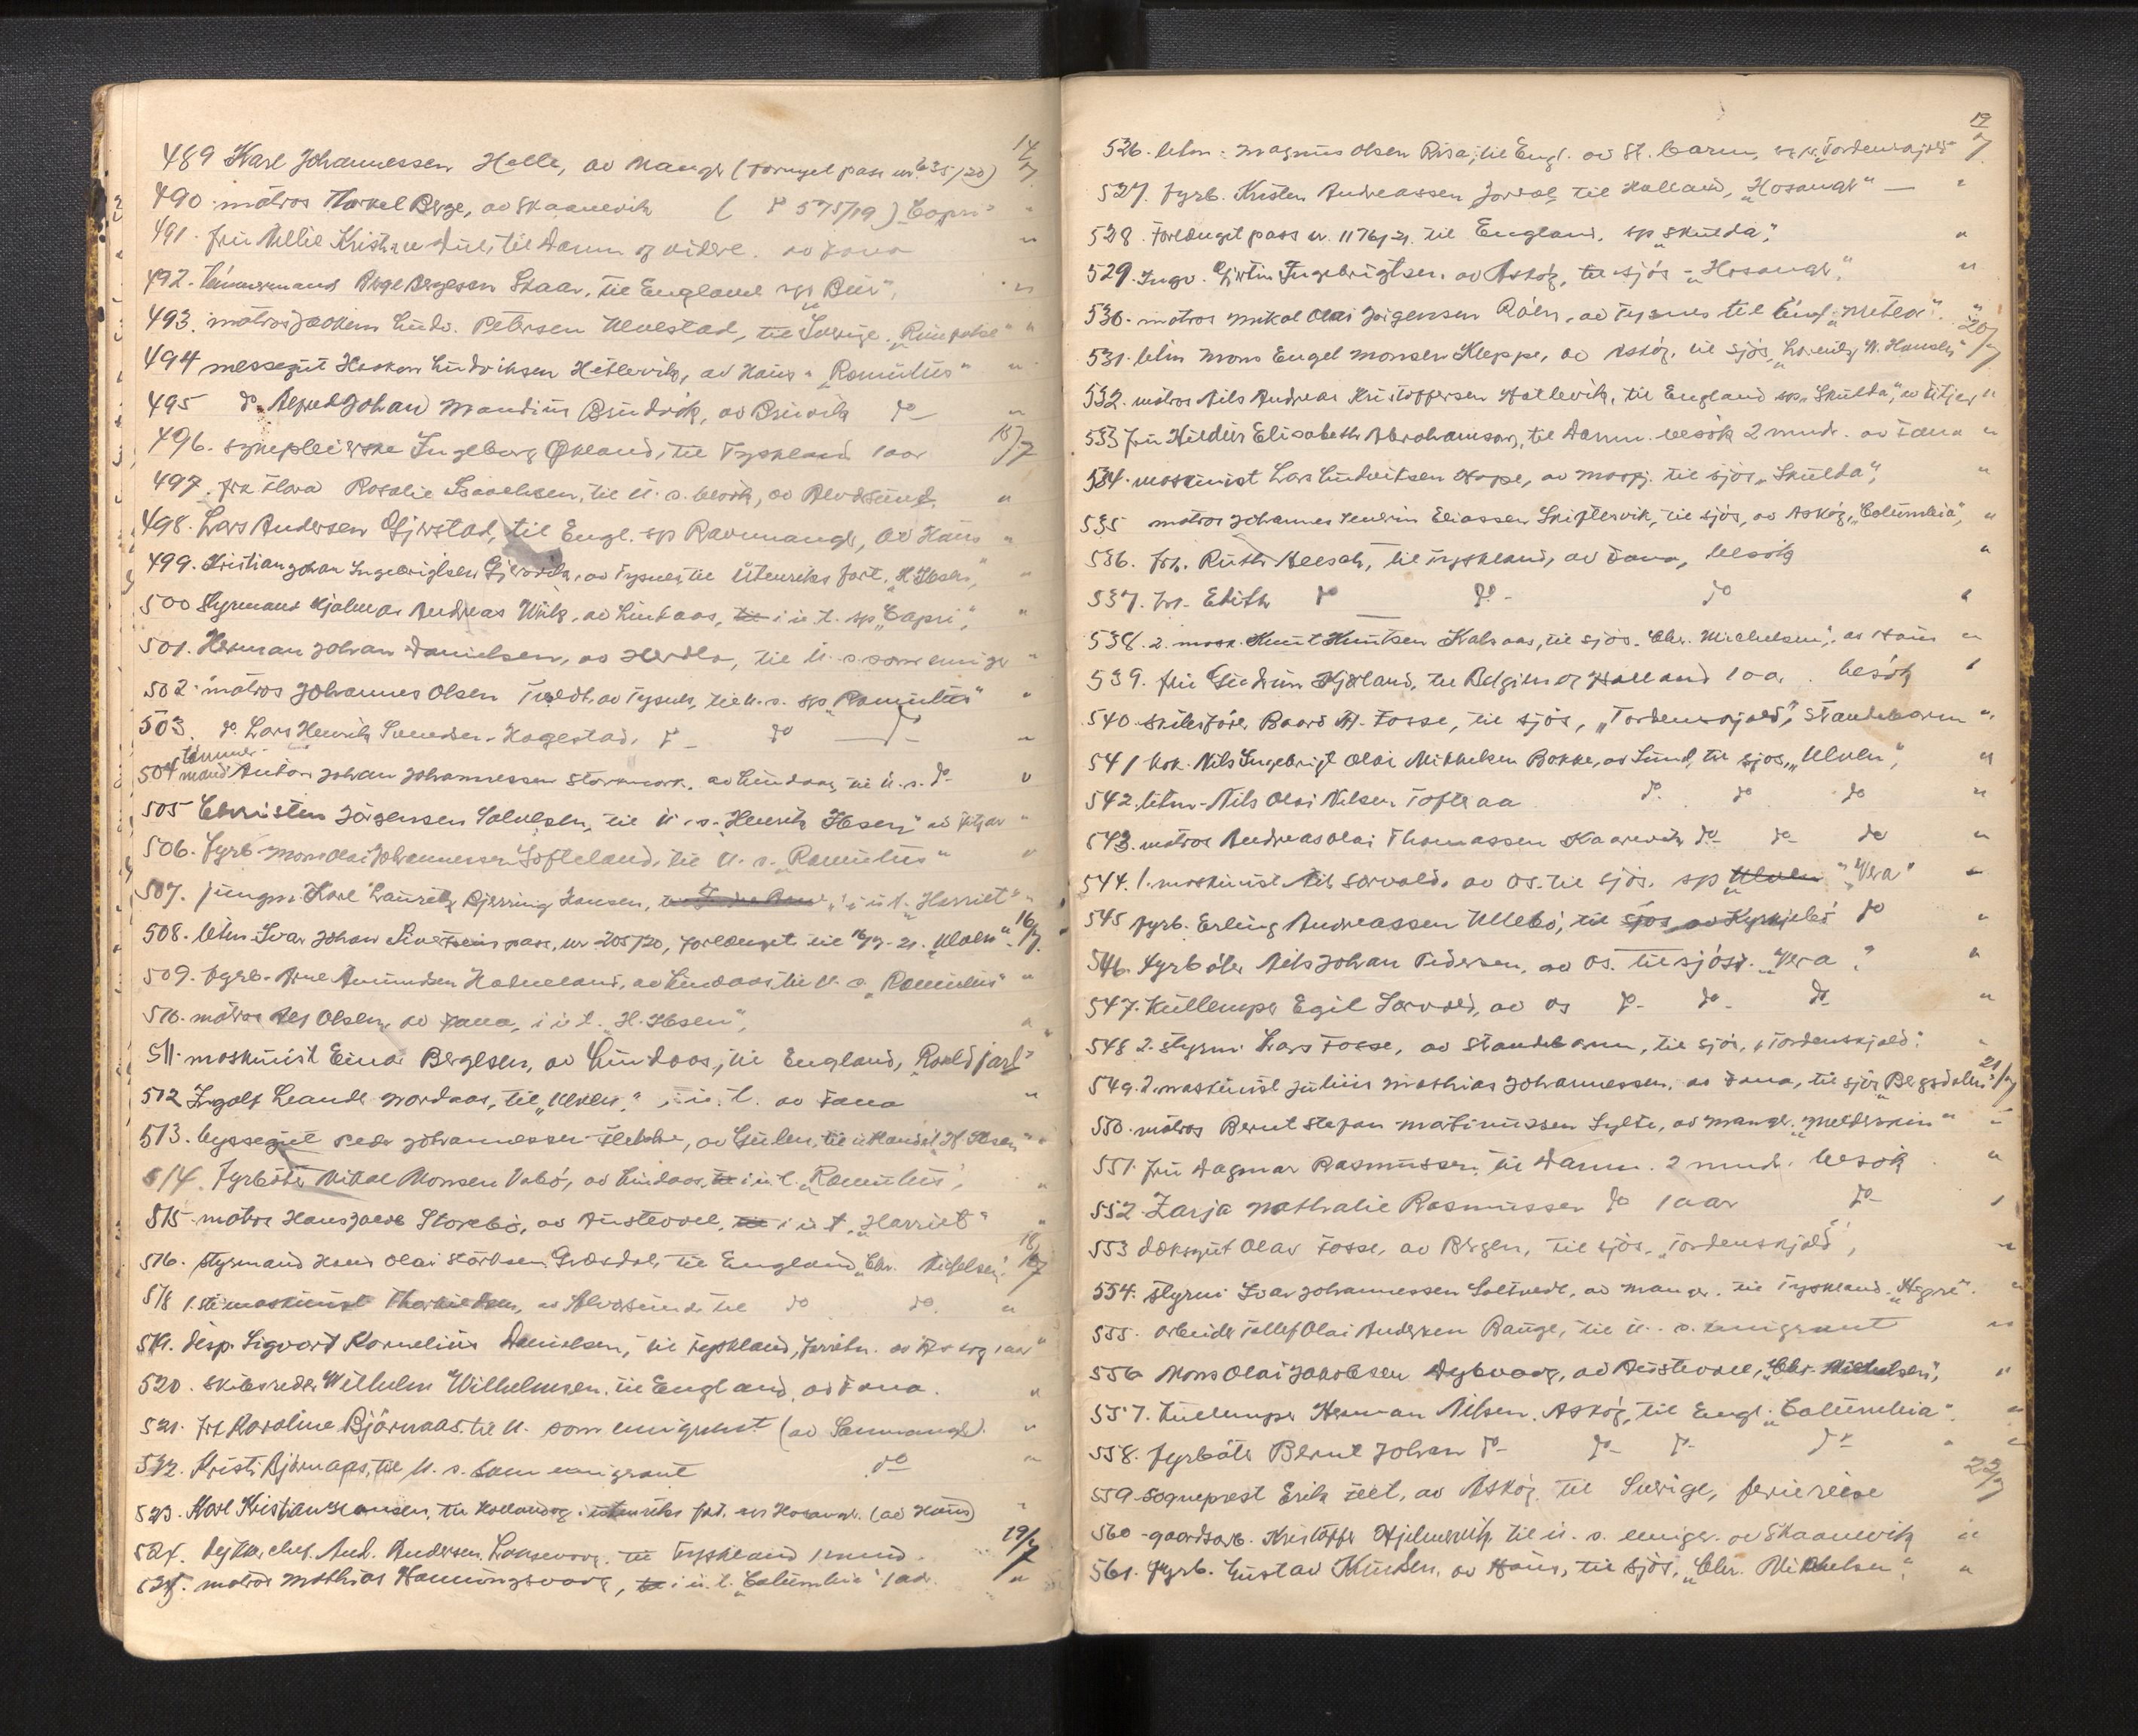 14/7
489 Karl Johannessen Helle, av Manger (fornyet pass nr. 635/20)
490. matros Torkel Berge, av Skaanevik ( do 575/19) "Capri" "
491. fru Nellie Kristine til Danm. og videre. av Fana "
492. tømmermand Berge Bergesen Skaar, til England "
493. matros Joakim Ludv. Petersen Ulvestad, til Sverige. "
494 messegut Haakon Ludviksen Hetlevik, av Haus "Romulus" "
495 do. Alfred Johan Mandius Brudvik, av Bruvik do "
496. sykepleierske Ingeborg Økland, til Tyskland 1 aar 15/7
497. frk Flora Rosalie Isaachsen, til U. s. besøk, av Alversund. "
498. Lars Andersen Gjerstad, til Engl. sp Raunanger, av Haus "
499. Kristian Johan Ingebrigtsen Gjervik, av Tysnes, til Utenriks fart, "H. Ibsen", "
500 Styrmand Hjalmar Andreas Wiik, av Lindaas, til i u. t. sp "Capri", "
501. Herman Johan Danielsen, av Herdla, til U. s. som emigr "
502. matros Johannes Olsen Tvedt, av Tysnes, til u. s. sp "Romulus" "
503. do. Lars Henrik Svendsen Hagestad, do do do "
504 tømmermand Anton Johan Johannessen Storemark. av Lindaas, til U. s. do "
505 Christen Jørgensen Solvesen, til U. s. "Henrik Ibsen" av Fitjar "
506. fyrb. Mons Olai Johannessen Softeland, til U. s. "Romulus" "
507. jungm. Karl Lauritz Bjerring Hansen, i u t. "Harriet" "
508. letm. Ivar Johan pass, nr 205/20, forlænget til 16/7-21. "Ulven". 16/7.
509. fyrb. Arne Amundsen Hodneland, av Lindaas, til U. s. "Romulus" "
510. matros Olsen, av Fana, i u t. "H. Ibsen", "
511. maskinist Einar Bergesen, av Lindaas, til England, "Ragnvald Jarl" "
512 Ingolf Leander Nordaas, til "Ulven". i u. t. av Fana "
513. byssegut Peder Johannessen av Gulen, til "H. Ibsen" "
514. fyrbøter Mikal Monsen Vabø, av Lindaas, til i u. t. "Romulus", "
515. matros Hans Jacob Storebø, av Austevoll, til i u t. "Harriet" "
516. Styrmand Hans Olai Græsdal, til England "Chr. Michelsen". 18/7
518 1.ste maskinist av Alversund. til do do. "
519. disp. Sigvart Kornelius Danielsen, til Tyskland, forretn. 1 aar "
520. skibsreder Wilhelm Wilhelmsen. til England av Fana. "
521. frk Karoline Bjørnaas. til U. som emigrant (av Samnanger). "
522. Kristi Bjørnaas, til U. s. som emigrant do "
523. Karl Kristian Hansen, til Holland og i utenriks fart. Hosanger. (av Haus) "
524. And. Andersen Laksevaag. til Tyskland 1 mnd. 19/7
525. matros Mathias Hanningsvaag, til i u. t. "Columbia" 1 aar. "
19/7
526. letm. Magnus Olsen Risa, til Engl. av St. barm, "Tordenskjold"
527. fyrb. Kristen Andreassen Jordal til Holland, "Hosanger" — "
528. Forlænget pass nr. 1176/21. til England. sp "Skulda", "
529. Ingv. Ingebrigtsen. av Askøy, til sjøs - "Hosanger". "
530. matros Mikal Olai Jørgensen av Tysnes til Engl. "Meteor". "
531. letm Mons Engel Monsen Kleppe, av Askøy, til sjøs, "Lorentz W. Hansen" 20/7
532. matros Nils Andreas Kristoffersen Hatlevik, til England sp "Skulda", av Fitjar "
533 fru Hildur Elisabeth Abrahamsen, til Danm. besøk 2 mndr. av Fana "
534. maskinist Lars Ludvitsen Hope, av Masfj. til sjøs "Skulda", "
535 matros Johannes Severin Eliassen Skiftesvik, til sjøs, av Askøy, "Columbia", "
536. frk. Ruth Heesch, til Tyskland, av Fana, besøk "
537. frk. Edith do do. do "
538. 2. mask. Knut Knutsen Kalsaas, til sjøs. "Chr. Michelsen", av Haus "
539. fru Gudrun Hjørland, til Belgien og Holland 1 aar. besøk "
540. skibsfører Baard M. Fosse, til sjøs, "Tordenskjold", Standebarm "
541 kok. Nils Ingebrigt Olai Mikkelsen Bokke, av Sund, til sjøs, "Ulven", "
542. letm. Nils Olai Nilsen Tofteraa do. do do "
543. matros Andreas Olai Thomassen Kaarevik do do do "
544. 1. maskinist Nils Sørvold, av Os. til sjøs. sp "Ulven" "Vera" "
545 fyrb. Erling Andreassen Ullebø, til sjøs, av Kyrkjebø do "
546. Fyrbøter Nils Johan Pedersen, av Os. til sjøs. "Vera". "
547. Kullemper Egil Sørvold, av Os do. do. do "
548 2. styrm. Lars Fosse, av Standebarm, til sjøs, "Tordenskjold". "
549. 2. maskinist Julius Mathias Johannessen, av Fana, til sjøs "Bergsdalen". 21/7
550. matros Bernt Stefan Martinussen Sylta, av Manger. "Melderskin" "
551. fru Dagmar Rasmussen, til Danm. 2 mndr. besøk "
552 Zarja Nathalie Rasmussen do 1 aar do "
553 dæksgut Olav Fosse, av Bergen, til sjøs. "Tordenskjold", "
554. styrm. Ivar Johannessen Saltvedt, av Manger. til Tyskland. "Hegre". "
555. arbeider Tollef Olai Andersen Bauge, til U. s. emigrant "
556 Mons Olai Jakobsen Dybvaag, av Austevoll, "Chr. Michelsen", "
557. kullemper Herman Nilsen, Askøy, til Engl. "Columbia". "
558. fyrbøter Bernt Johan do do do do "
559. sogneprest Erik av Askøy til Sverige, feriereise 22/7
560 - gaardsarb. Kristoffer Hjelmevik, til U. s. emigr. av Skaanevik "
561. Fyrb. Gustav Knudsen, av Haus, til sjøs, "Chr. Michelsen". "